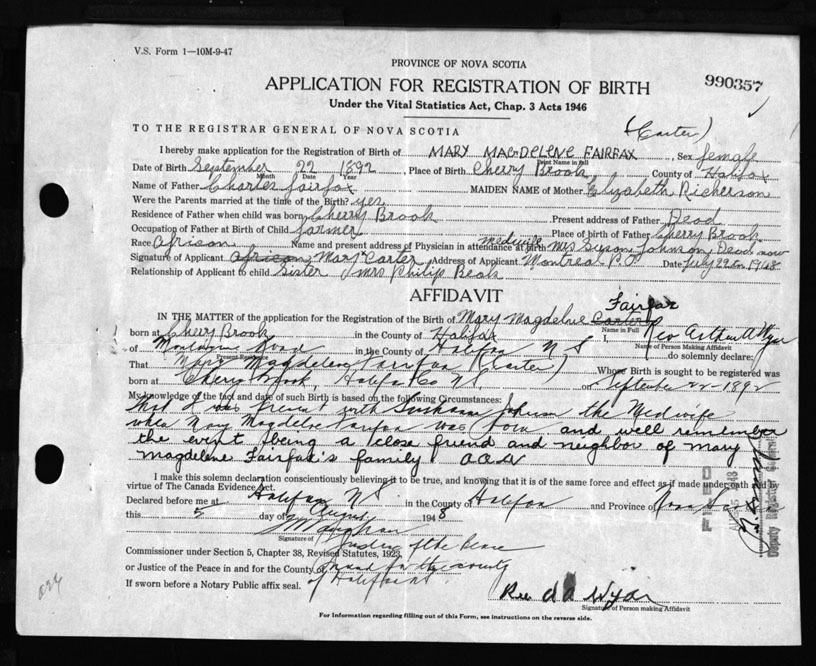 V.S. Form 1—10M-9-47
PROVINCE OF NOVA SCOTIA
APPLICATION FOR REGISTRATION OF BIRTH
990357
Under the Vital Statistics Act, Chap. 3 Acts 1946
TO THE REGISTRAR GENERAL OF NOVA SCOTIA
(Carter)
I hereby make application for the Registration of Birth of MARY MAGDELENE FAIRFAX, Sex female
Print Name in full
Date of Birth September 22 1892, Place of Birth Cherry Brook, County of Halifax
Month Date Year
Name of Father Charles Fairfax MAIDEN NAME of Mother Elizabeth Richerson
Were the Parents married at the time of the Birth? yes
Residence of Father when child was born Cherry Brook Present address of Father Dead
Occupation of Father at Birth of Child farmer Place of birth of Father Cherry Brook
Race African Name and present address of Physician in attendance at birth medwife Mrs Susan Johnson Dead now
Signature of Applicant African Mary Carter Address of Applicant Montreal P.Q. Date July 22nd 1948
Relationship of Applicant to child Sister Mrs Philip Beals
AFFIDAVIT
Fairfax
IN THE MATTER of the application for the Registration of the Birth of Mary Magdelene Carter
Name in Full
born at Cherry Brook in the County of Halifax I, Arthur A Wyse
Name of Person Making Affidavit
of Road in the County of Halifax N S do solemnly declare:
Present Residence
That Mary Magdelene Fairfax (Carter) Whose Birth is sought to be registered was
born at Cherry Brook, Halifax Co N.S. on September 22 1892
My knowledge of the fact and date of such Birth is based on the following Circumstances:
that I was present with Johnson the Medwife
when Mary Magdelene Fairfax was born and well remember
the event being a close friend and neighbor of Mary
Magdelene Fairfax's family
I make this solemn declaration conscientiously believing it to be true, and knowing that it is of the same force and effect as if made under oath and by
virtue of The Canada Evidence Act.
Declared before me at Halifax N S in the County of Halifax and Province of Nova Scotia
this 5 day of August 1948
Signature of
Justice of the Peace
Commissioner under Section 5, Chapter 38, Revised Statutes, 1923,
or Justice of the Peace in and for the County in and for the county
of Halifax
If sworn before a Notary Public affix seal.
Rev A A Wyse
Signature of Person making Affidavit
For Information regarding filling out of this Form, see instructions on the reverse side.
FILED
Deputy Registrar General